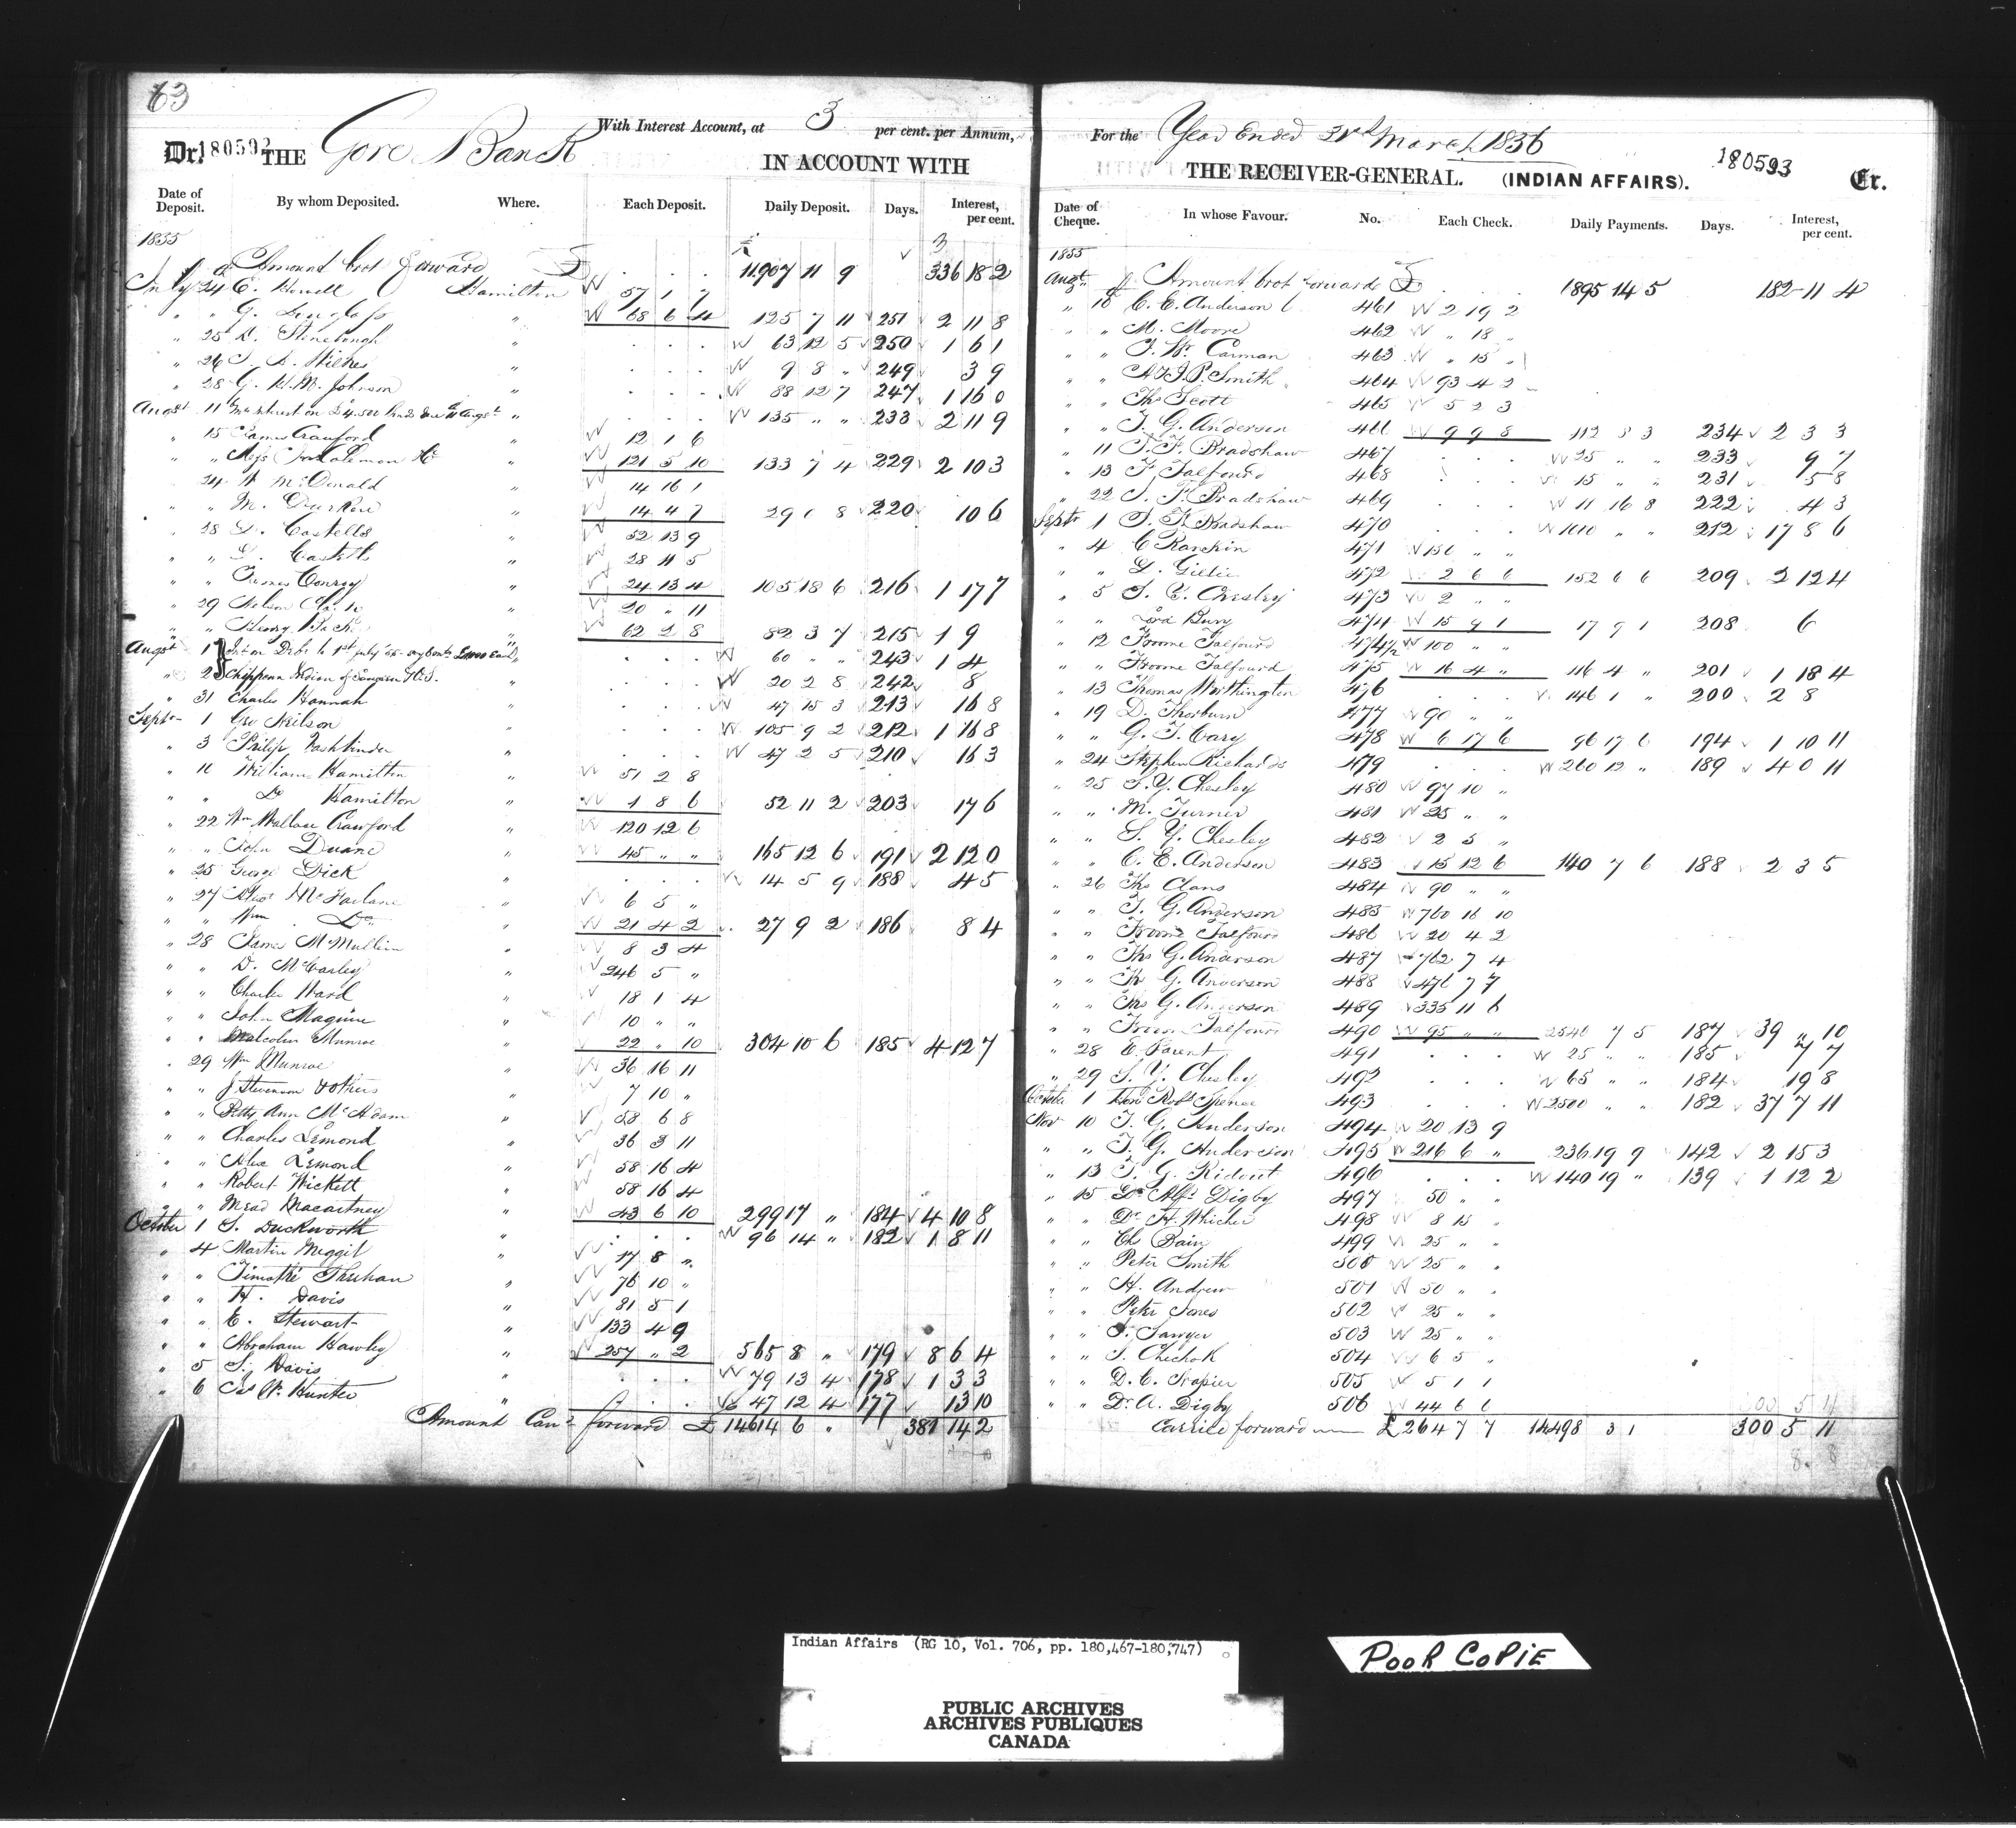 63
Dr. 180592 THE Gore Bank With Interest Account, at 3 per cent. per Annum,
IN ACCOUNT WITH
Date of Deposit. By whom Deposited. Where. Each Deposit. Daily Deposit. Days. Interest, per cent.
1855 3
Amount brot forward £ 11907 11 9 336 18 2
July 24 C. Howell Hamilton 57 1 7
" " G. Douglass " 68 6 4 125 7 11 251 2 11 8
" 25 " 63 12 5 250 1 6 1
" 26 Wilkes " 9 8 " 249 3 9
" 28 G. H. M. Johnson " 88 12 7 247 1 16 0
Augst 11 " 135 " " 233 2 11 9
" 15 James Crawford " 12 1 6
" " " 121 5 10 133 7 4 229 2 10 3
" 24 McDonald " 14 16 1
" " M. " 14 4 7 29 0 8 220 10 6
" 28 D. Costello " 52 13 9
" " D. " 28 11 5
" " James Conroy " 24 13 4 105 18 6 216 1 17 7
" 29 Nelson " 20 " 11
" " Henry " 62 2 8 82 3 7 215 1 9
Augst 1 60 " " 243 1 4
" 2 Chippewa Indian of 20 2 8 242 8
" 31 Charles Hannah " 47 15 3 213 16 8
Septr 1 Geo Neilson " 105 9 2 212 1 16 8
" 3 Philip " 47 2 5 210 16 3
" 10 William Hamilton " 51 2 8
" " Do Hamilton " 1 8 6 52 11 2 203 17 6
" 22 Wm Wallace Crawford " 120 12 6
" " John Duane " 45 " " 165 12 6 191 2 12 0
" 25 George Dick " 14 5 9 188 4 5
" 27 Alex McFarlane " 6 5 "
" " Wm Do " 21 4 2 27 9 2 186 8 4
" 28 James McMullin " 8 3 4
" " D. McCarley " 246 5 "
" " Charles Ward " 18 1 4
" " John Maguire " 10 " "
" " Malcolm Munroe " 22 " 10 304 10 6 185 4 12 7
" 29 Wm Munroe " 36 16 11
" " J. Stevenson & others " 7 10 "
" " Betty Ann McAdam " 58 6 8
" " Charles Lemond " 36 3 11
" " Alex Lemond " 58 16 4
" " Robert Wickett " 58 16 4
" " Mead Macartney " 43 6 10 299 17 " 184 4 10 8
October 1 S. Duckworth " 96 14 " 182 1 8 11
" 4 Martin Meggit " 17 8 "
" " Timothé " 76 10 "
" " H. Davis " 81 5 1
" " E. Stewart " 133 4 9
" " Abraham Hawley " 257 " 2 565 8 " 179 8 6 4
" 5 S. Davis " 79 13 4 178 1 3 3
" 6 Jas W. Hunter " 47 12 4 177 13 10
Amount Card forward £ 14614 6 " 381 14 2
For the Year Ended 31st March 1836
THE RECEIVER-GENERAL. (INDIAN AFFAIRS). 180593 Cr.
Date of Cheque. In whose Favour. No. Each Check. Daily Payments. Days. Interest, per cent.
1855
Augt Amount brot forward £ 1895 14 5 182 11 4
" 10 C. E. Anderson 461 2 19 2
" " M. Moore 462 " 18 "
" " J. W. Carman 463 " 15 "
" " A & J. P. Smith 464 93 4 2
" " Ths Scott 465 5 2 3
" " T. G. Anderson 466 9 9 8 112 8 3 234 2 3 3
" 11 J. F. Bradshaw 467 25 " " 233 9 7
" 13 F. Talfourd 468 15 " " 231 5 8
" 22 J. F. Bradshaw 469 11 16 8 222 4 3
Septr 1 J. F. Bradshaw 470 1010 " " 212 17 8 6
" 4 C Rankin 471 150 " "
" " D. Gillie 472 2 6 6 152 6 6 209 2 12 4
" 5 S. Y. Chesley 473 2 " "
" " Lord Bury 474 15 9 1 17 9 1 208 6
" 12 Froome Talfourd 474½ 100 " "
" " Froome Talfourd 475 16 4 " 116 4 " 201 1 18 4
" 13 Thomas Worthington 476 146 1 " 200 2 8
" 19 D. Thorburn 477 90 " "
" " G. T. Cary 478 6 17 6 96 17 6 194 1 10 11
" 24 Stephen Richards 479 260 12 " 189 4 0 11
" 25 S. Y. Chesley 480 97 10 "
" " M. Turner 481 25 " "
" " S. Y. Chesley 482 2 5 "
" " C. E. Anderson 483 15 12 6 140 7 6 188 2 3 5
" 26 Ths Clans 484 90 " "
" " T. G. Anderson 485 760 16 10
" " Froome Talfourd 486 20 4 2
" " Ths G. Anderson 487 762 7 4
" " Ths G. Anderson 488 476 7 7
" " Ths G. Anderson 489 335 11 6
" " Froome Talfourd 490 95 " " 2540 7 5 187 39 " 10
" 28 E. Parent 491 25 " " 185 7 7
" 29 S. Y. Chesley 492 65 " " 184 19 8
October 1 Hon Robt Spence 493 2500 " " 182 37 7 11
Nov 10 T. G. Anderson 494 20 13 9
" " T. G. Anderson 495 216 6 " 236 19 9 142 2 15 3
" 13 T. G. Ridout 496 140 19 " 139 1 12 2
" 15 Dr Alf. Digby 497 50 " "
" " Dr H. Whicher 498 8 15 "
" " Ch Bain 499 25 " "
" " Peter Smith 500 25 " "
" " H. Andrew 501 50 " "
" " Peter Jones 502 25 " "
" " J. Sawyer 503 25 " "
" " J. Chechok 504 6 5 "
" " D. C. 505 5 1 1
" " Dr A. Digby 506 44 6
Carried forward £ 264 7 7 14498 3 1 300 5 11
Indian Affairs (RG 10, Vol. 706, pp. 180,467-180,747)
PUBLIC ARCHIVES
ARCHIVES PUBLIQUES
CANADA
POOR COPIE